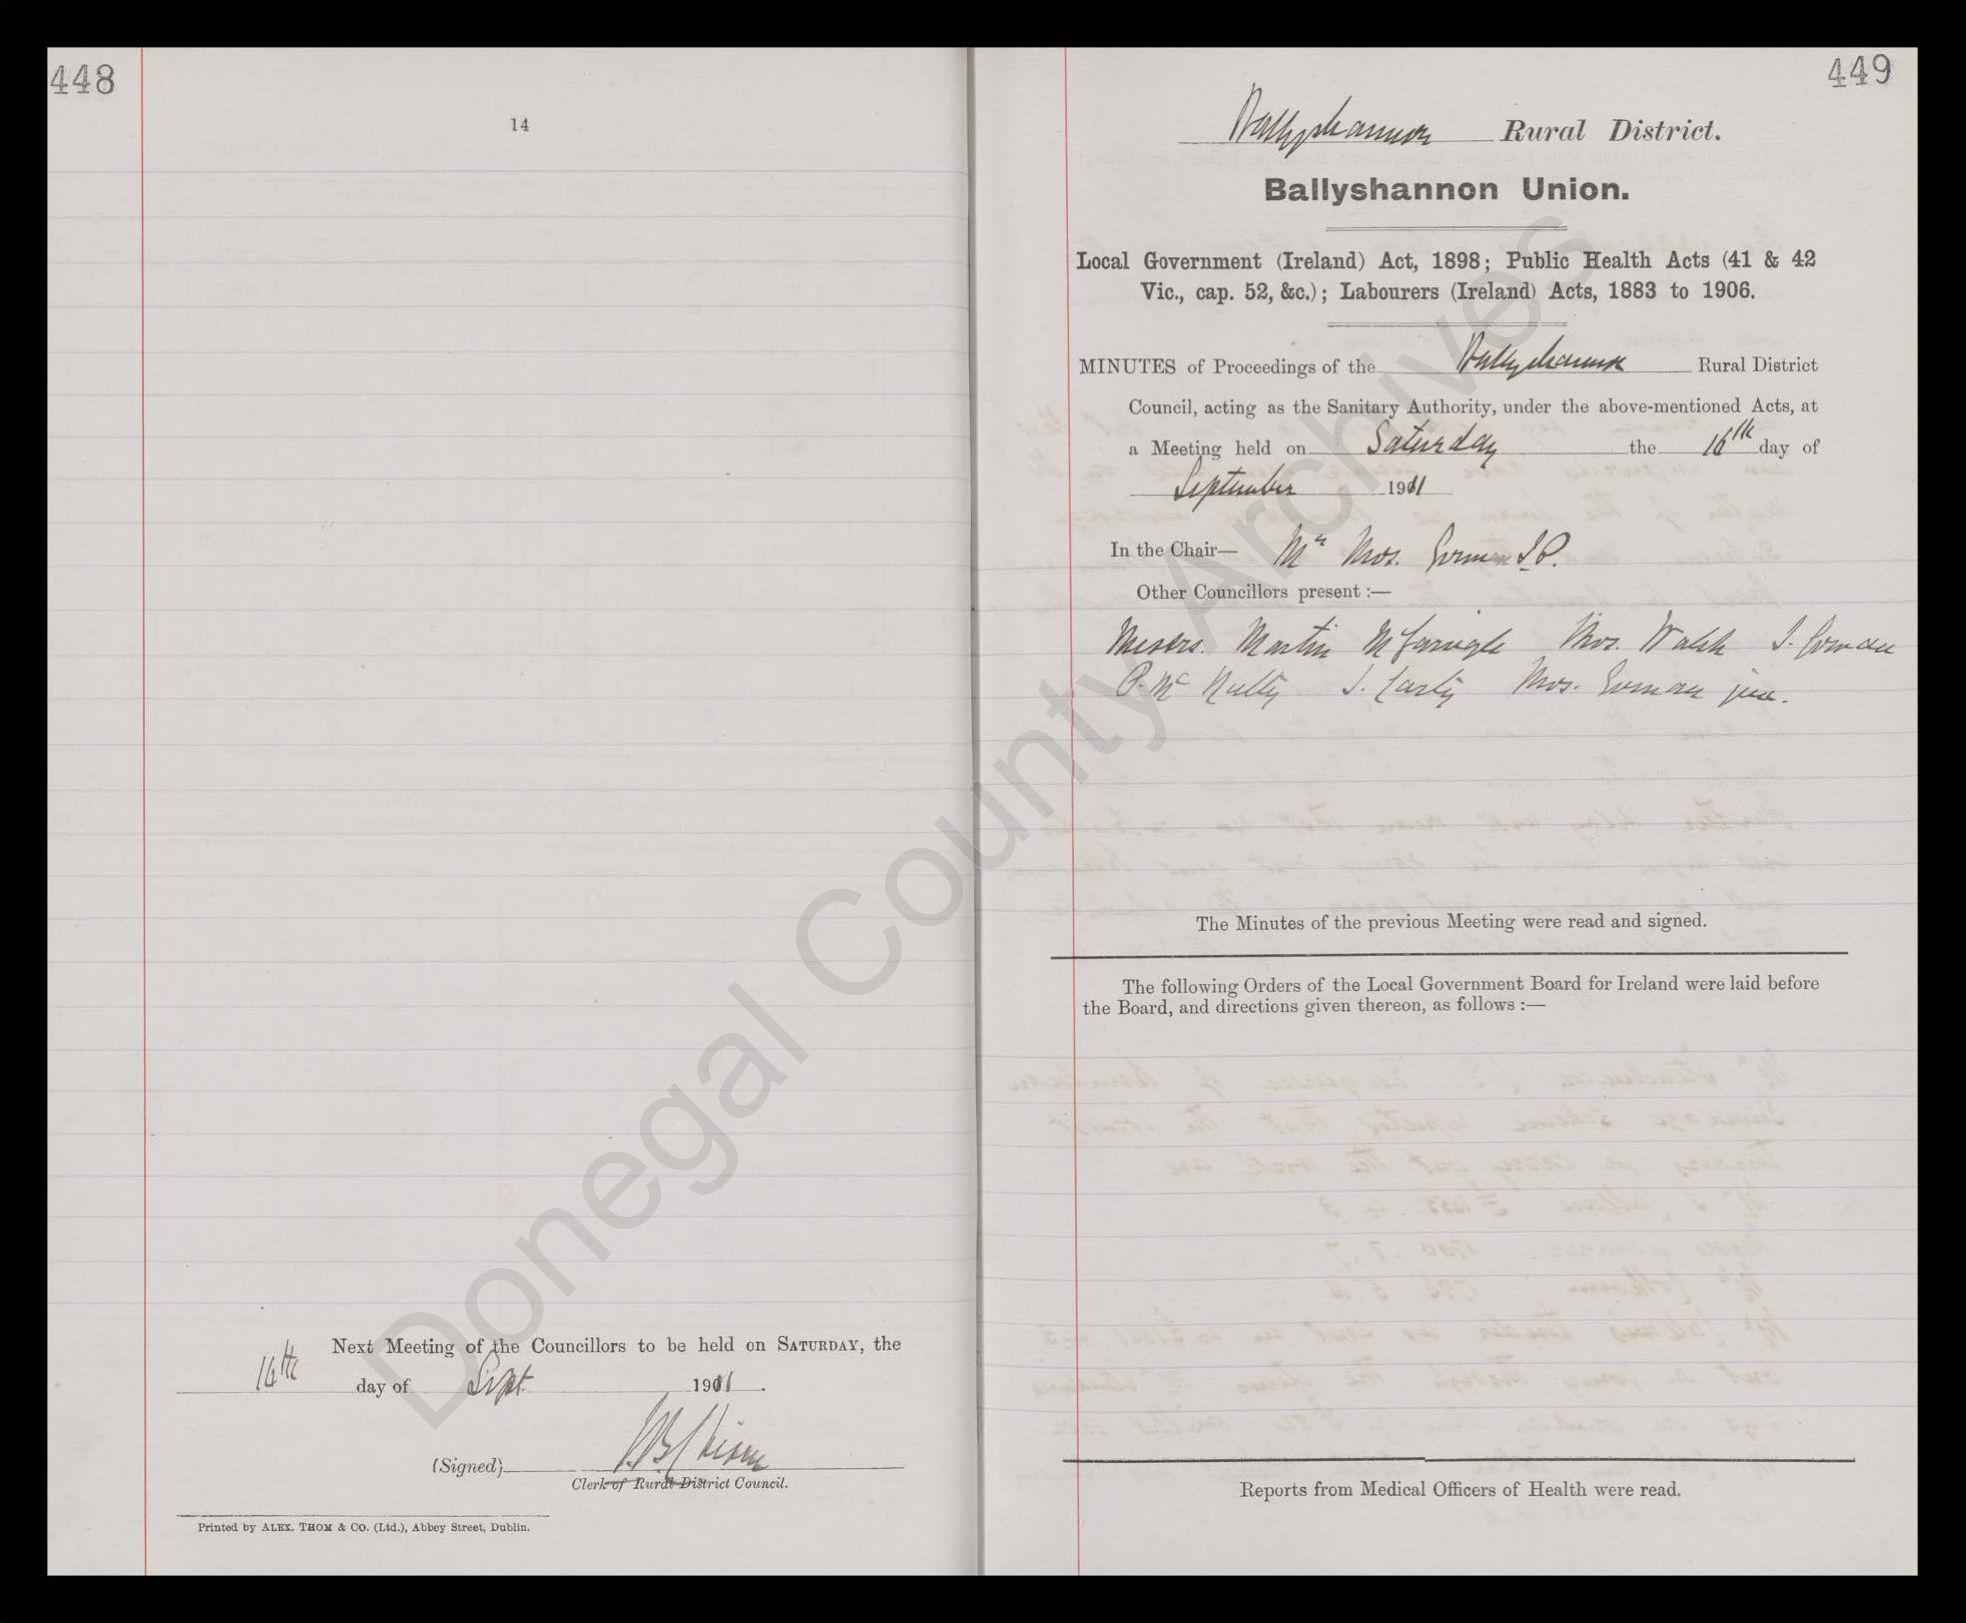 448
14
Next Meeting of the Councillors to be held on SATURDAY, the
16th day of Sept 1911.
(Signed)
Clerk of Rural District Council.
Printed by ALEX. THOM & CO. (Ltd.), Abbey Street, Dublin.
449
Ballyshannon Rural District.
Ballyshannon Union.
Local Government (Ireland) Act, 1898; Public Health Acts (41 & 42
Vic., cap. 52, &c.); Labourers (Ireland) Acts, 1883 to 1906.
MINUTES of Proceedings of the Ballyshannon Rural District
Council, acting as the Sanitary Authority, under the above-mentioned Acts, at
a Meeting held on Saturday the 16th day of
September 1911
In the Chair— Mr Thos. Gorman J.P.
Other Councillors present :—
Messrs. Martin McGarrigle Thos. Walsh J. Gorman
P. Mc Nulty J. Carty Thos. Gorman jun.
The Minutes of the previous Meeting were read and signed.
The following Orders of the Local Government Board for Ireland were laid before
the Board, and directions given thereon, as follows :—
Reports from Medical Officers of Health were read.
Donegal County Archives